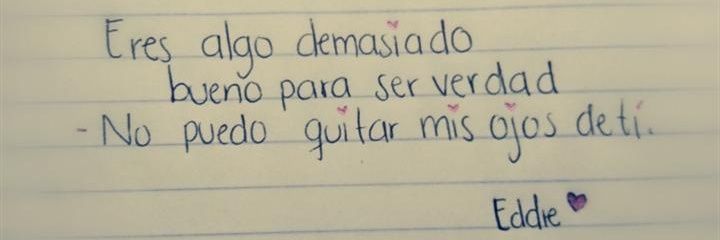 Eres algo demasiado
bueno para ser verdad
- No puedo quitar mis ojos de ti.
Eddie ♥